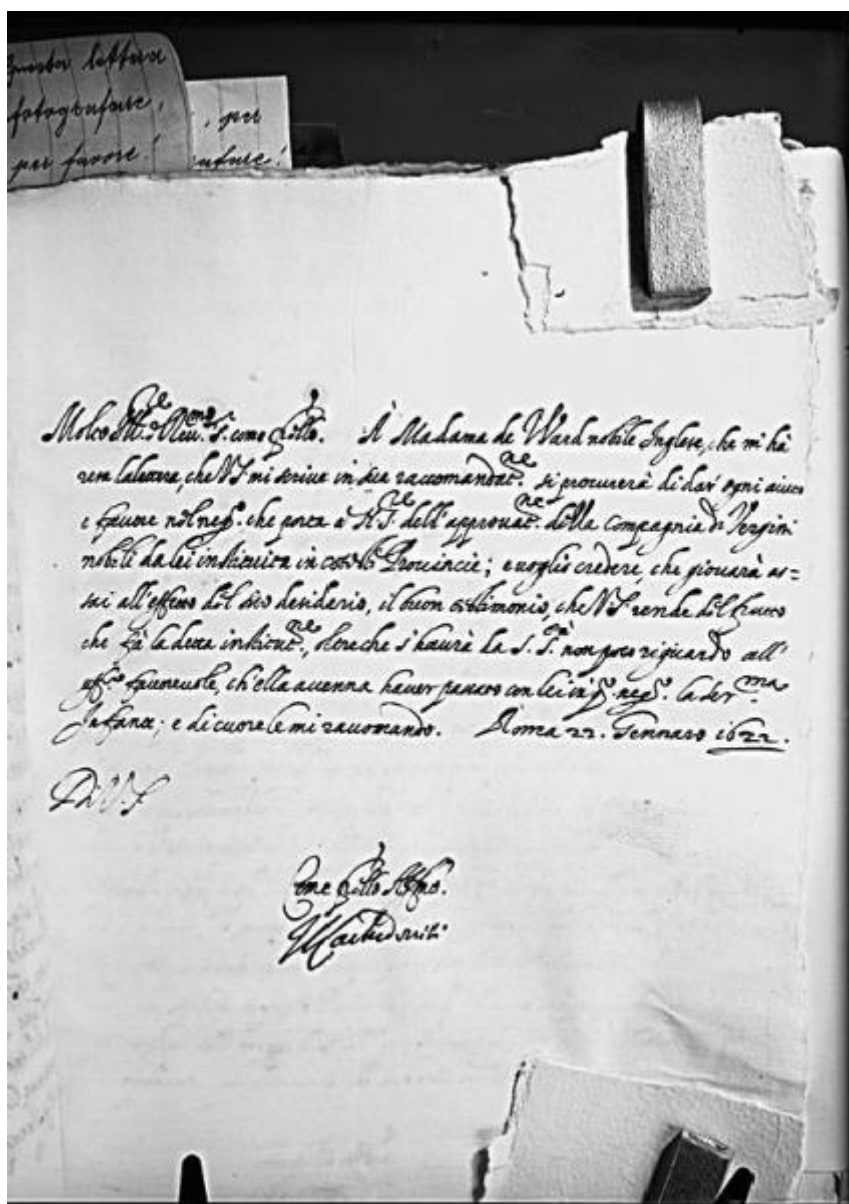 questa lettera
fotografare,
per favore!
, per
Molto Ill.re et Rev.mo S.r come fr̃ello. A Madama de Ward nobile Inglese, che mi hà
resa la lettera, che V.S. mi scrive in sua raccomandat.ne si procurerà di dar' ogni aiuto
e favore nel neg.o che porta à N.S.re dell'approvat.ne della Compagnia di Vergini
nobili da lei instituita in coteste Provincie; e voglio credere, che giovarà as=
sai all'effetto del suo desiderio, il buon testimonio, che V.S. rende del frutto
che fà la detta institut.ne, oltre che s'haurà da S. S.tà non poco riguardo all'
uff.o favorevole, ch'ella accenna haver passato con lei in q.o neg.o la Ser.ma
Infante; e di cuore le mi raccomando. Roma 22. Gennaro 1622.
Di V.S.
Come fr̃ello